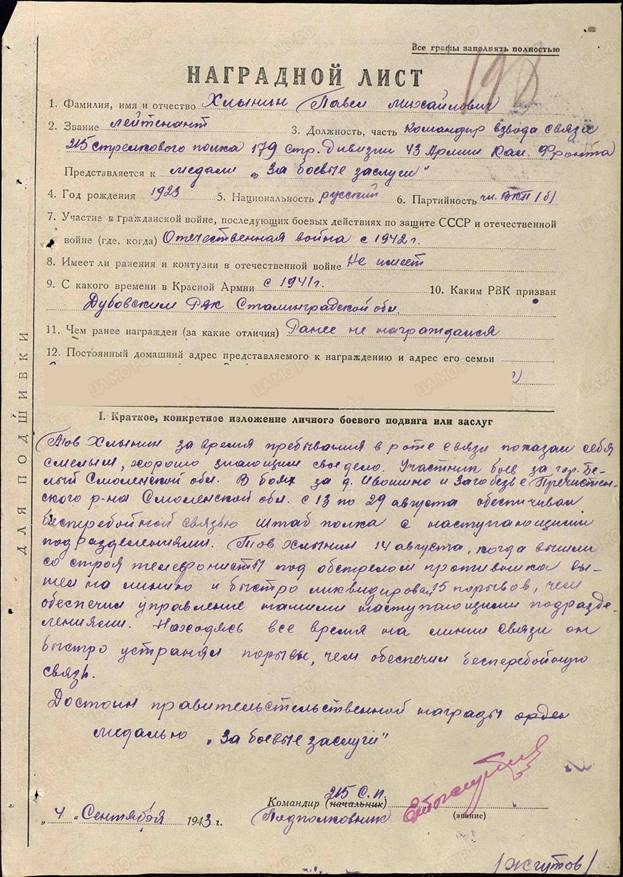 Все графы заполнять полностью
198
НАГРАДНОЙ ЛИСТ
1. Фамилия, имя и отчество Хлынин Павел Михайлович
2. Звание лейтенант 3. Должность, часть Командир взвода связи
215 стрелкового полка 179 стр. дивизии 43 Армии Кал. Фронта
Представляется к медали „За боевые заслуги"
4. Год рождения 1923 5. Национальность русский 6. Партийность чл. ВКП(б)
7. Участие в гражданской войне, последующих боевых действиях по защите СССР и отечественной
войне (где, когда) Отечественная война с 1942 г.
8. Имеет ли ранения и контузии в отечественной войне Не имеет
9. С какого времени в Красной Армии с 1941 г. 10. Каким РВК призван
Дубовским РВК Сталинградской обл.
11. Чем ранее награжден (за какие отличия) Ранее не награждался
12. Постоянный домашний адрес представляемого к награждению и адрес его семьи
ДЛЯ ПОДШИВКИ
I. Краткое, конкретное изложение личного боевого подвига или заслуг
Тов Хлынин за время пребывания в роте связи показал себя
смелым, хорошо знающим свое дело. Участник боев за гор. Бе-
лый Смоленской обл. В боях за д. Ивошино и Загобезье Пречистен-
ского р-на Смоленской обл. с 13 по 29 августа обеспечивал
бесперебойной связью штаб полка с наступающими
подразделениями. Тов Хлынин 14 августа, когда вышли
со строя телефонисты под обстрелом противника вы-
шел на линию и быстро ликвидировал 15 порывов, чем
обеспечил управление нашими наступающими подразде-
лениями. Находясь все время на линии связи он
быстро устранял порывы, чем обеспечил бесперебойную
связь.
Достоин правительственной награды орден
медалью „За боевые заслуги"
Командир (начальник) 215 С.П.
"4" Сентября 1943 г. Подполковник
(звание)
/Жгутов/